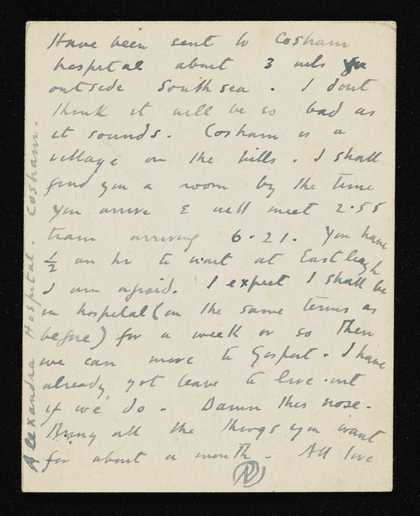 Have been sent to Cosham
hospital about 3 mls
outside Southsea. I dont
think it will be so bad as
it sounds. Cosham is a
village on the hills. I shall
find you a room by the time
you arrive & will meet 2.55
train arriving 6.21. You have
½ an hr to wait at Eastleigh
I am afraid. I expect I shall be
in hospital (on the same terms as
before) for a week or so then
we can move to Gosport. I have
already got leave to live out
if we do. Damn this nose.
Bring all the things you want
for about a month. All love
Alexandra Hospital. Cosham.